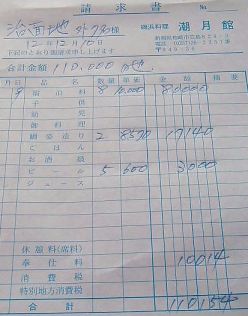 請求書
No.
治面地 外7名様
磯浜料理 潮月館
12年12月10日
下記のとおり御請求申し上げます
合計金額 110,000
月日 品名 数量 単価 金額 摘要
9 宿泊料 8 10,000 80000
子供
幼児
御料理
鯛姿造り 2 8570 17140
ごはん
お酒類
ビール 5 600 3000
ジュース
休憩料(席料)
奉仕料 10014
消費税
特別地方消費税
合計 110154